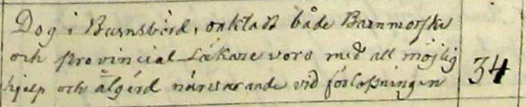 Dog i Barnsbörd, oaktadt både Barnmorska
och provincial Läkare voro med all möjlig
hjelp och åtgärd närvarande vid förlossningen 34